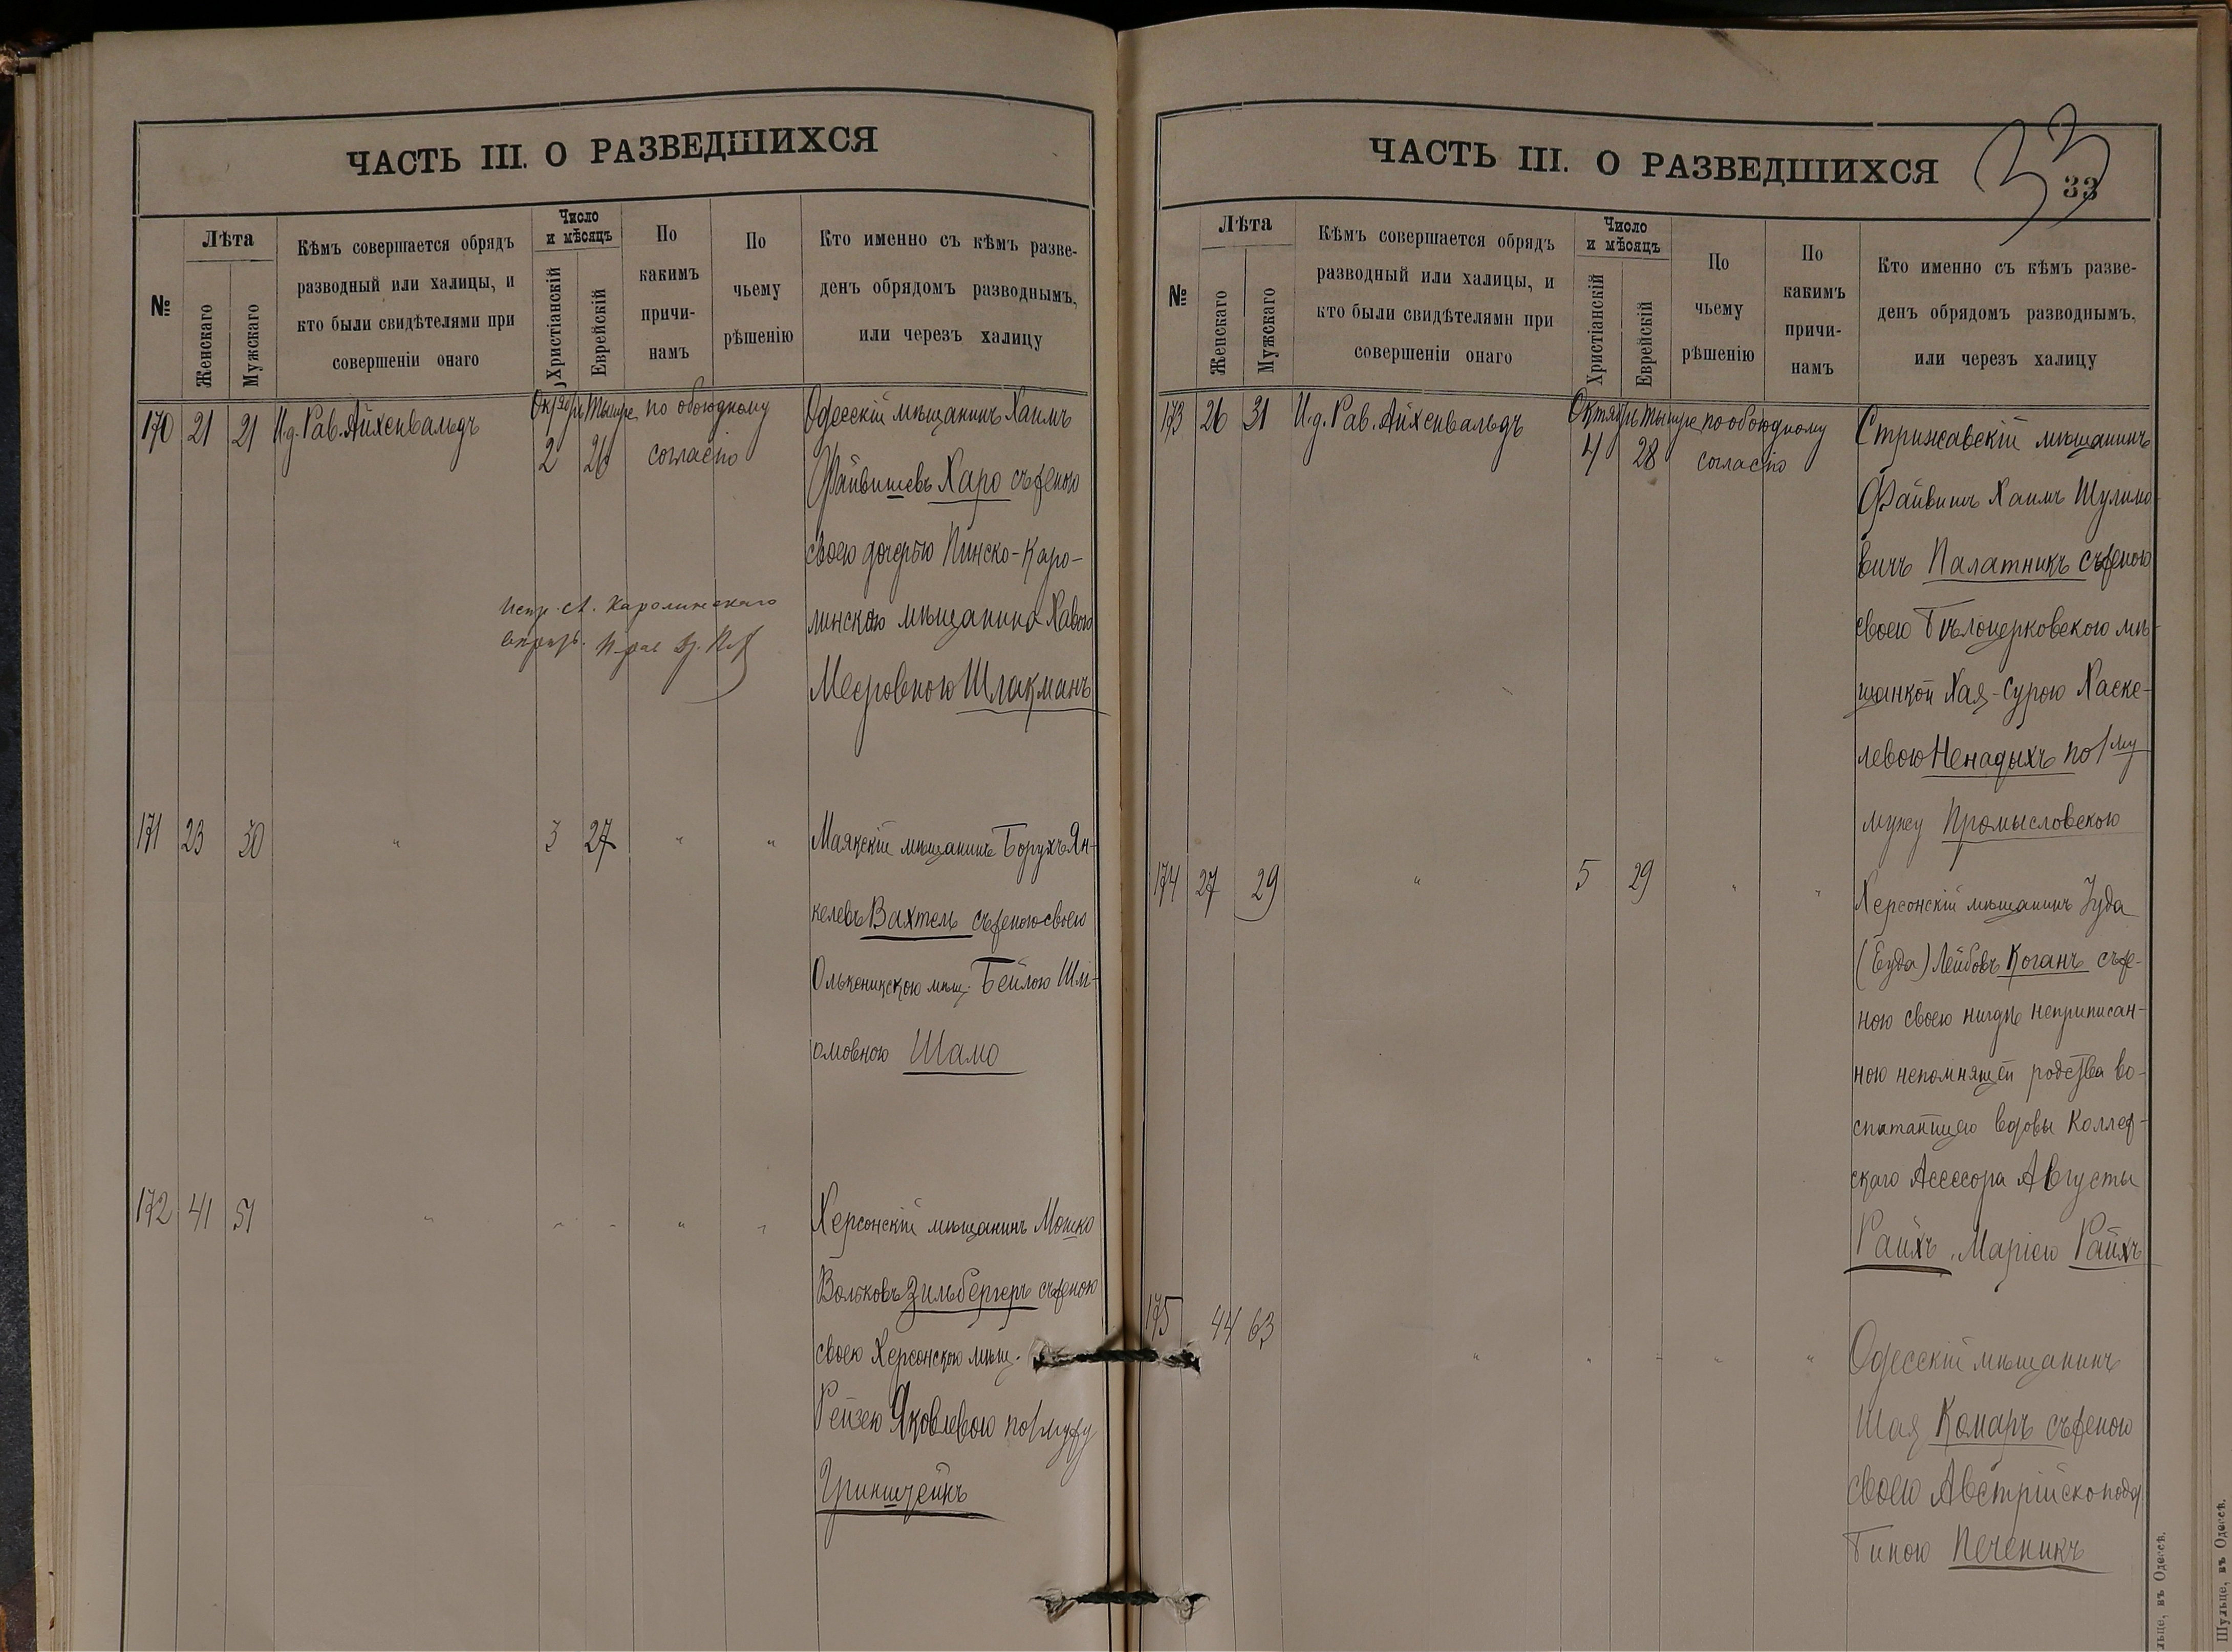 ЧАСТЬ III. О РАЗВЕДШИХСЯ
№
Лѣта
Женскаго
Мужскаго
Кѣмъ совершается обрядъ
разводный или халицы, и
кто были свидѣтелями при
совершеніи онаго
Число
и мѣсяцъ
Христіанскій
Еврейскій
По
какимъ
причи-
намъ
По
чьему
рѣшенію
Кто именно съ кѣмъ разве-
денъ обрядомъ разводнымъ,
или черезъ халицу
170 21 21 И.д. Рав. Айхенвальдъ Октября Тышре по обоюдному Одесскій мѣщанинъ Хаимъ
2 26 согласію Файвишевъ Харо съ женою
своею дочерью Пинско-Каро-
линскаго мѣщанина Хавою
Мееровною Шлакманъ
Каролинскаго
171 23 30 " 3 27 " " Маякскій мѣщанинъ Борухъ Ян-
келевъ Вахтель съ женою своею
Олькеникскою мѣщ. Бейлою Шл-
омовною Шамо
172 41 51 " " " " " Херсонскій мѣщанинъ Мошко
Вольковъ Зильбергеръ съ женою
своею Херсонскою мѣщ.
Рейзею Яковлевою по мужу
Гринштейнъ
ЧАСТЬ III. О РАЗВЕДШИХСЯ
33
33
№
Лѣта
Женскаго
Мужскаго
Кѣмъ совершается обрядъ
разводный или халицы, и
кто были свидѣтелями при
совершеніи онаго
Число
и мѣсяцъ
Христіанскій
Еврейскій
По
чьему
рѣшенію
По
какимъ
причи-
намъ
Кто именно съ кѣмъ разве-
денъ обрядомъ разводнымъ,
или черезъ халицу
173 26 31 И.д. Рав. Айхенвальдъ Октября Тышре по обоюдному Стрижавскій мѣщанинъ
4 28 согласію Файвишъ Хаимъ Шулимо-
вичъ Палатникъ съ женою
своею Бѣлоцерковскою мѣ-
щанкой Хая-Сурою Хаске-
левою Ненадыхъ по 1му
мужу Промысловскою
174 27 29 " 5 29 " " Херсонскій мѣщанинъ Іуда
(Еуда) Лейбовъ Коганъ съ же-
ною своею нигдѣ неприписан-
ною непомнящей родства во-
спитанницею вдовы Коллеж-
скаго Асессора Августы
Райхъ, Маріею Райхъ
175 44 63 " " " " " Одесскій мѣщанинъ
Шая Комаръ съ женою
своею Австрійскопод.
Биною Печеникъ
въ Одессѣ.
Шульце, въ Одессѣ.